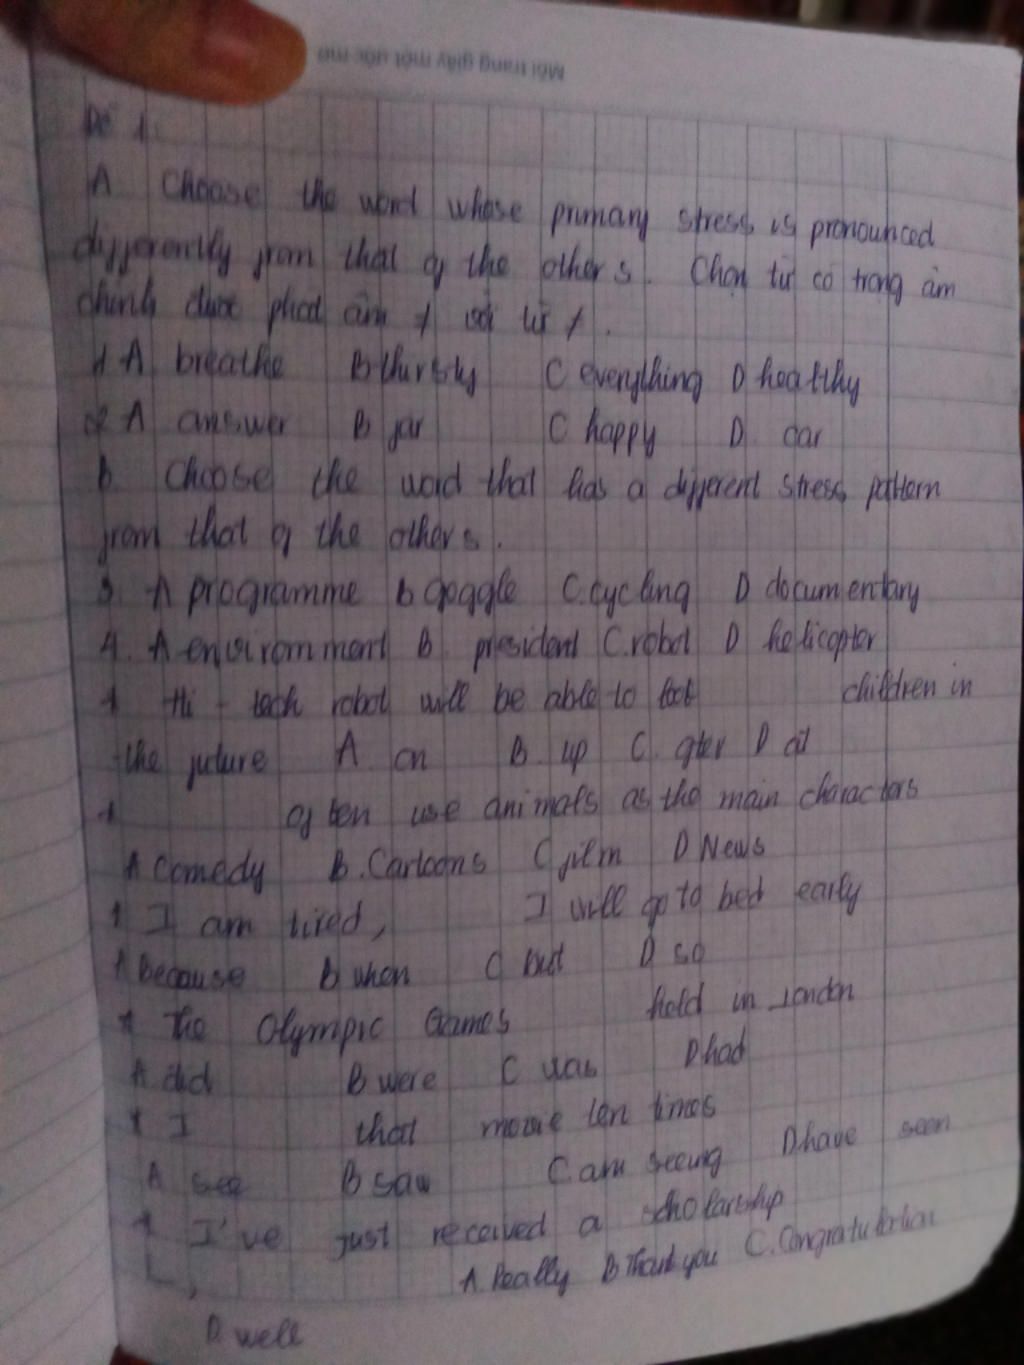 Mỗi trang giấy một ước mơ
Đề 1
A Choose the word whose primary stress is pronounced
differently from that of the others. Chọn từ có trọng âm
chính được phát âm ≠ với từ ≠.
1 A breathe B thirsty C everything D healthy
2 A answer B jar C happy D. car
B. Choose the word that has a different stress pattern
from that of the others.
3. A programme B goggle C. cycling D documentary
4. A environment B. president C. robot D helicopter
+ Hi - tech robot will be able to look children in
the future A. on B. up C. after D at
+ often use animals as the main characters
A Comedy B. Cartoons C film D News
+ I am tired, I will go to bed early
A because B when C but D so
+ The Olympic Games held in London
A. did B were C was D had
+ I that movie ten times
A see B saw C am seeing D have seen
+ I've just received a scholarship
A. Really B Thank you C. Congratulation
D. well